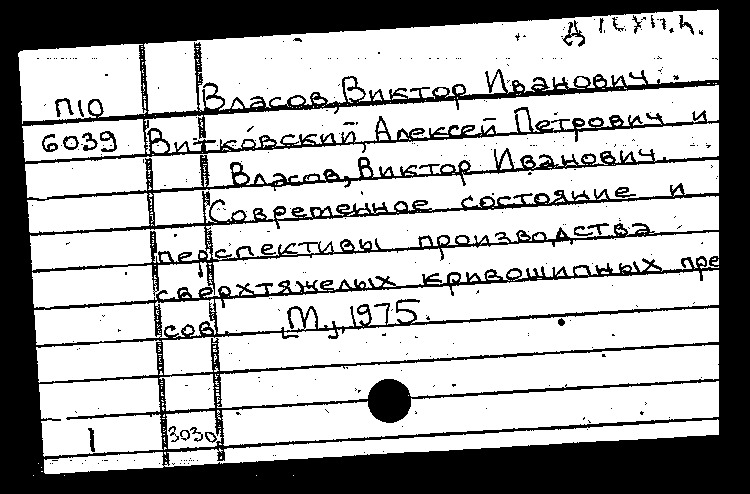 Власов, Виктор Иванович.
П10
6039 Витковский, Алексей Петрович и
Власов, Виктор Иванович.
Современное состояние и
перспективы производства
сверхтяжелых кривошипных пре
сов. [М.], 1975.
1 3030